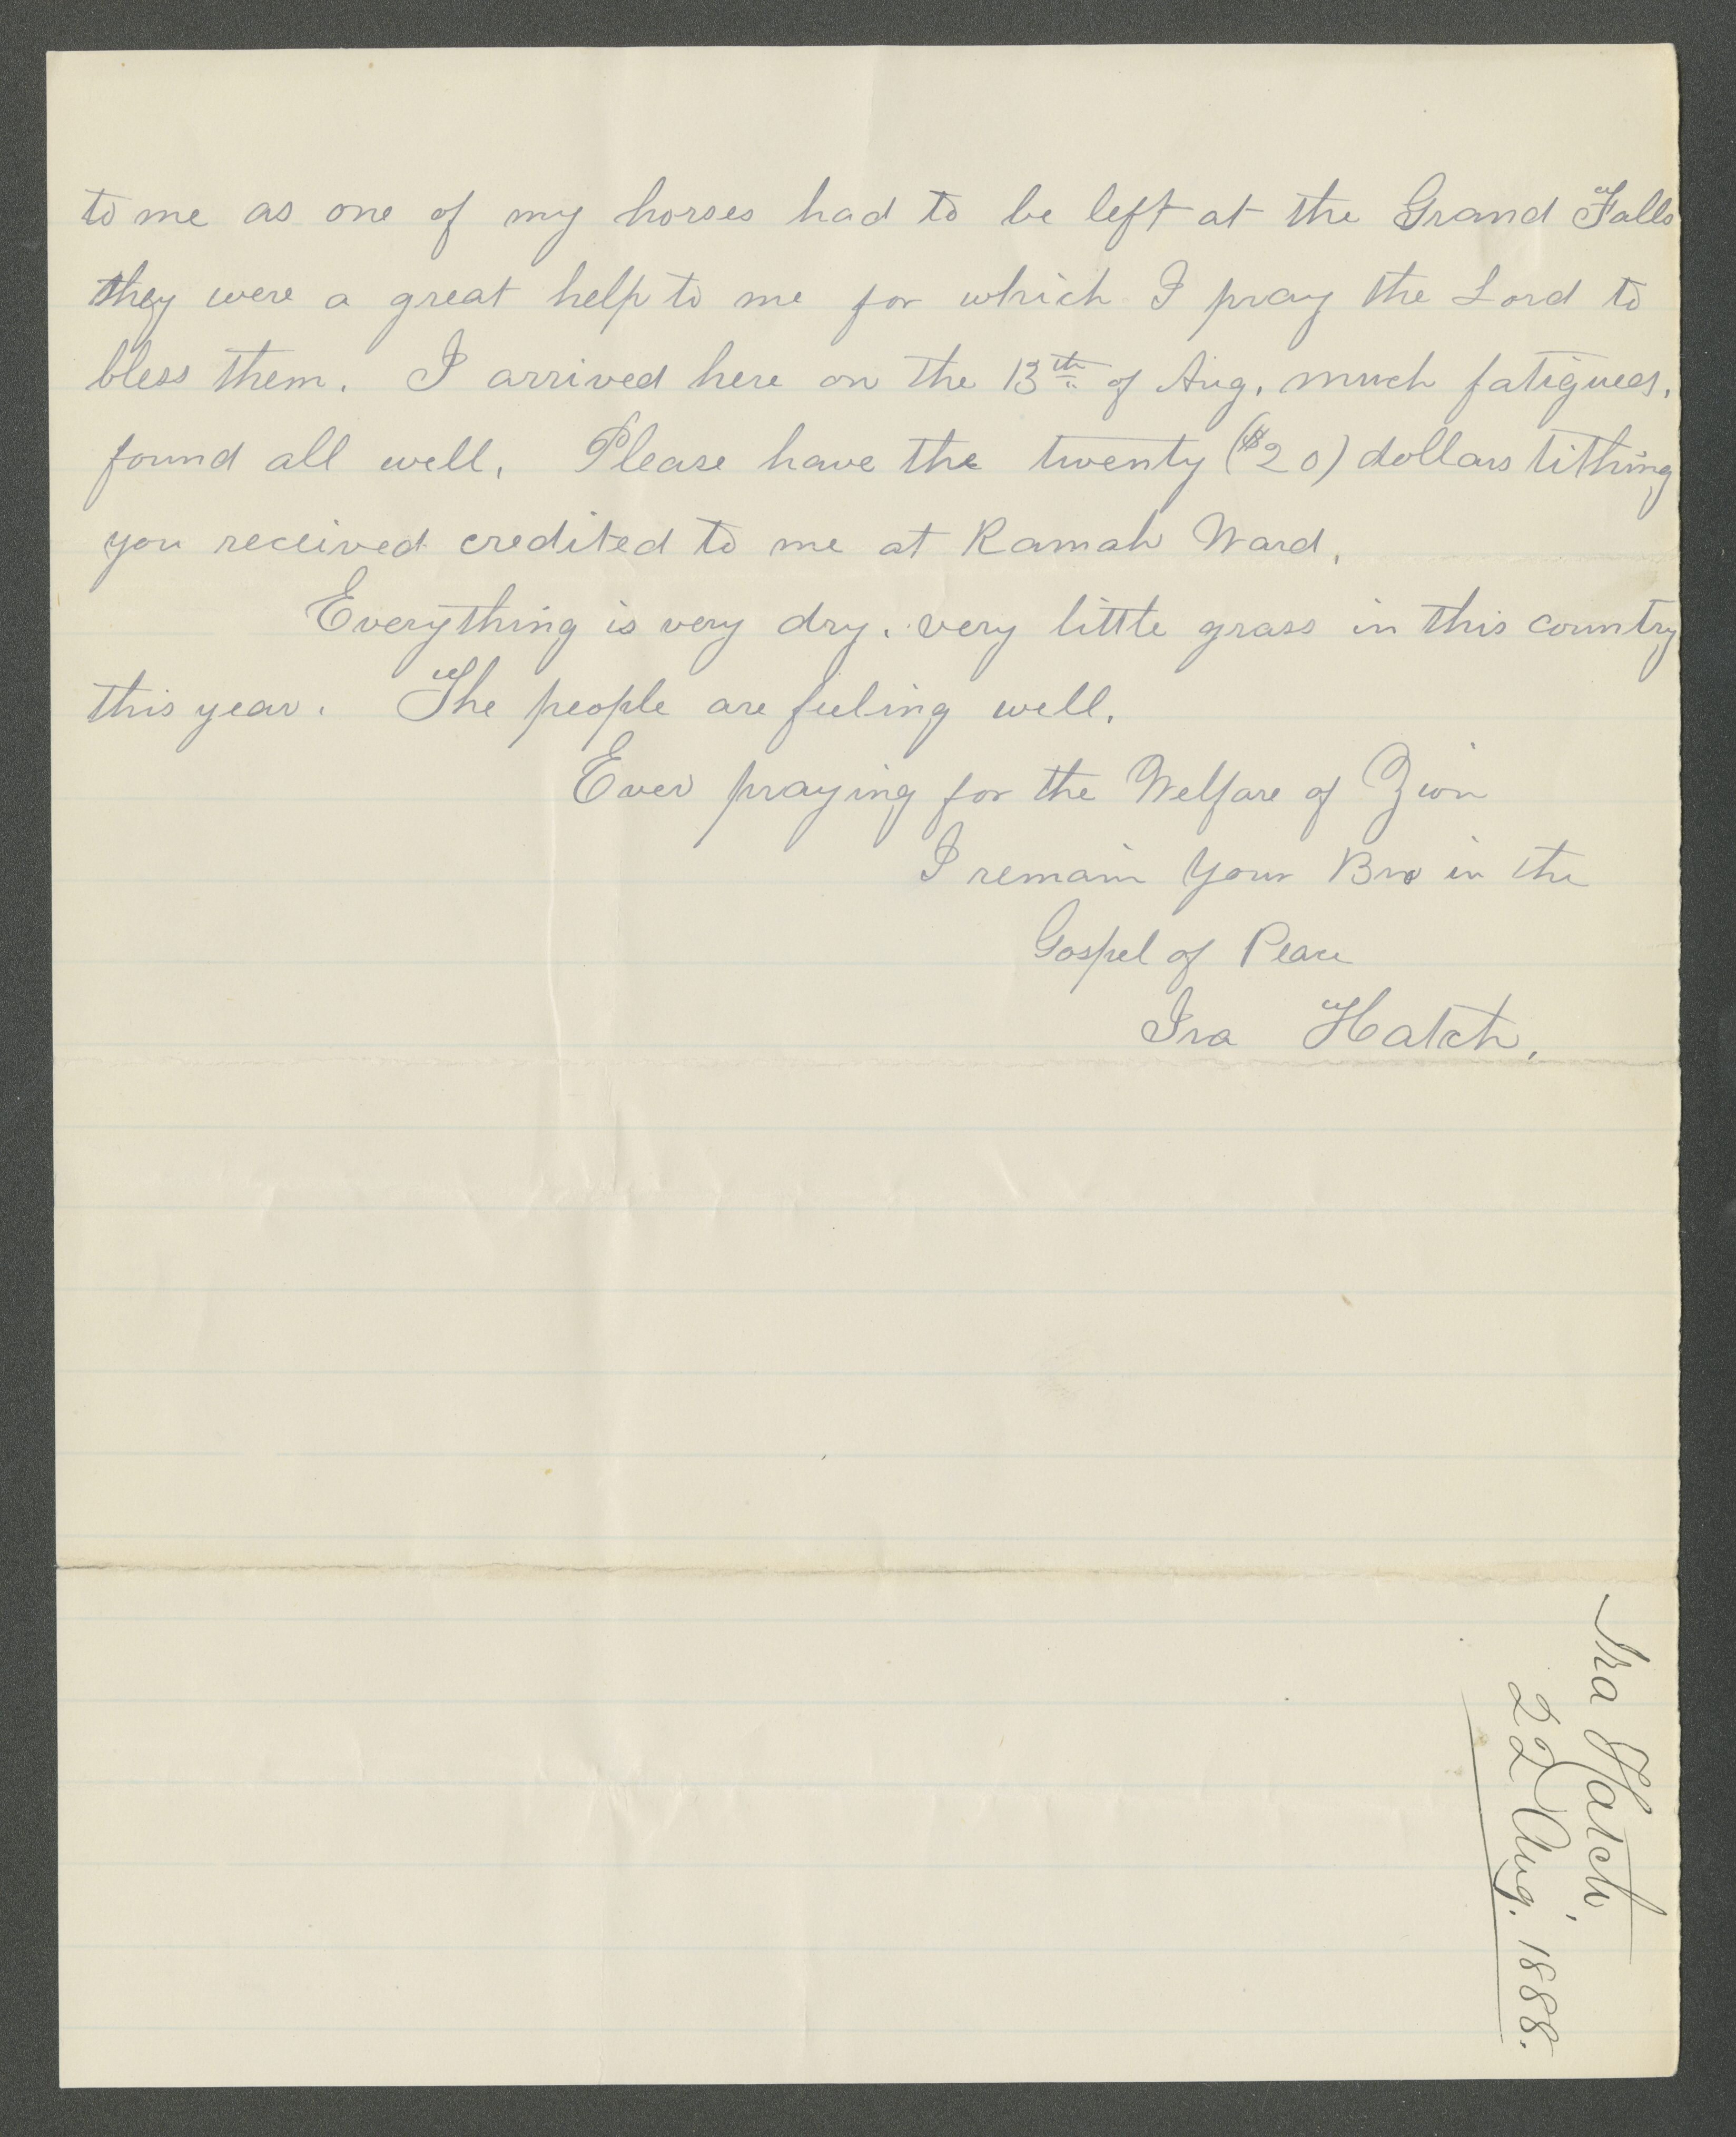 to me as one of my horses had to be left at the Grand Falls
they were a great help to me for which I pray the Lord to
bless them. I arrived here on the 13th of Aug. much fatigued.
found all well. Please have the twenty ($20) dollars tithing
you received credited to me at Ramah Ward.
Everything is very dry. very little grass in this country
this year. The people are feeling well.
Ever praying for the Welfare of Zion
I remain Your Bro in the
Gospel of Peace
Ira Hatch.
Ira Hatch,
22 Aug. 1888.